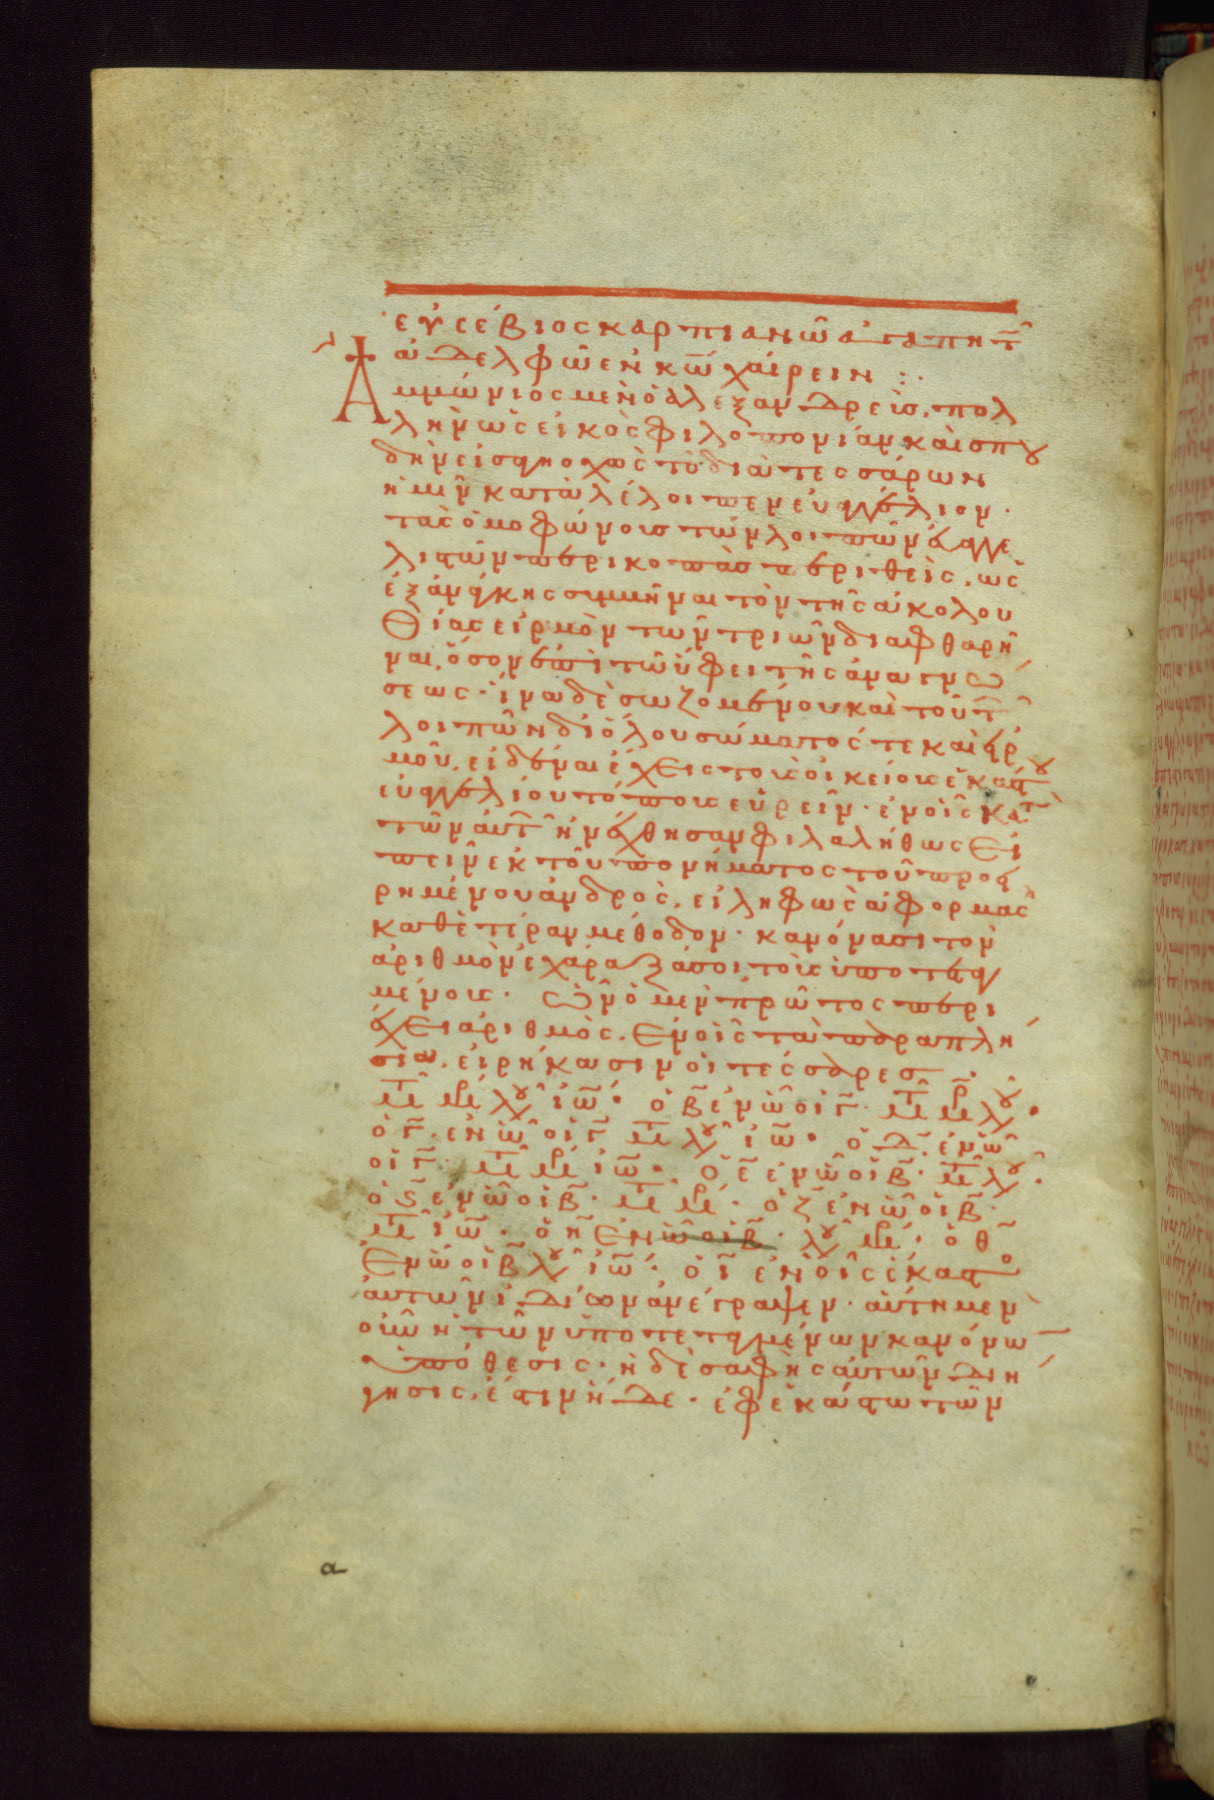 εὐσέβιος καρπιανῶ ἀγαπητ
ἀδελφῶ ἐν κω χαίρειν :·
Αμμώνιος μὲν ὁ ἀλεξανδρεὺς, πολ
λὴν ὡς εἰκὸς φιλοπονίαν καὶ σπου
δὴν εἰσαγηοχὼς τὸ διὰ τεσσάρων
ἡμῖν καταλέλοιπεν εὐαγγέλιον·
τὰς ὁμοφώνοις τῶν λοιπῶν εὐαγγε
λιστῶν περικοπὰς περιθεὶς, ὡς
ἐξ ἀνάγκης συμβῆναι τὸν τῆς ἀκολου
θίας εἱρμὸν τῶν τριῶν διαφθαρῆ
ναι, ὅσον ἐπὶ τῶ ὕφει τῆς ἀναγνώ
σεως· ἵνα δὲ σωζομένου καὶ τοῦ τ
λοιπῶν δι ὅλου σώματός τε καὶ εἱρ
μοῦ, εἰδέναι ἔχεις τοὺς οἰκείους ἑκάστου
εὐαγγελίου τόπους εὑρεῖν· ἐν οἷς κατ
τῶν αὐτ ἠνέχθησαν φιλαλήθως εἰ
πεῖν ἐκ τοῦ πονήματος τοῦ προει
ρημένου ἀνδρὸς, εἰληφὼς ἀφορμὰς
καθ ἑτέραν μέθοδον· κανόνας ι τὸν
ἀριθμὸν ἐχάραξά σοι τοὺς ὑποτεταγ
μένους· ὧν ὁ μὲν πρῶτος περι
έχει ἀριθμὸς, ἐν οἷς τὰ παραπλή
σια, εἰρήκασιν οἱ τέσσαρες·
μτ μρ λου ἰω· ὁ β ἐν ὧ οἱ γ· μτ μρ λου·
ὁ γ· ἐν ὧ οἱ γ μτ λου ἰω· ὁ δ ἐν ὧ
οἱ γ· μτ μρ ἰω· ὁ ε ἐν ὧ οἱ β· μτ λου·
ὁ ϛ ἐν ὧ οἱ β· μτ μρ· ὁ ζ ἐν ὧ οἱ β·
μτ ἰω· ὁ η ἐν ὧ οἱ β· λου μρ· ὁ θ
ἐν ὧ οἱ β λου ἰω· ὁ ι ἐν οἷς ἕκαστος
αὐτῶν ἰδίως ἀνέγραψεν· αὕτη μὲν
οὖν ἡ τῶν ὑποτεταγμένων κανόνω
ὑπόθεσις· ἡ δὲ σαφὴς αὐτῶν διή
γησις, ἔστιν ἥδε· ἐφ ἑκάστω τῶν
α